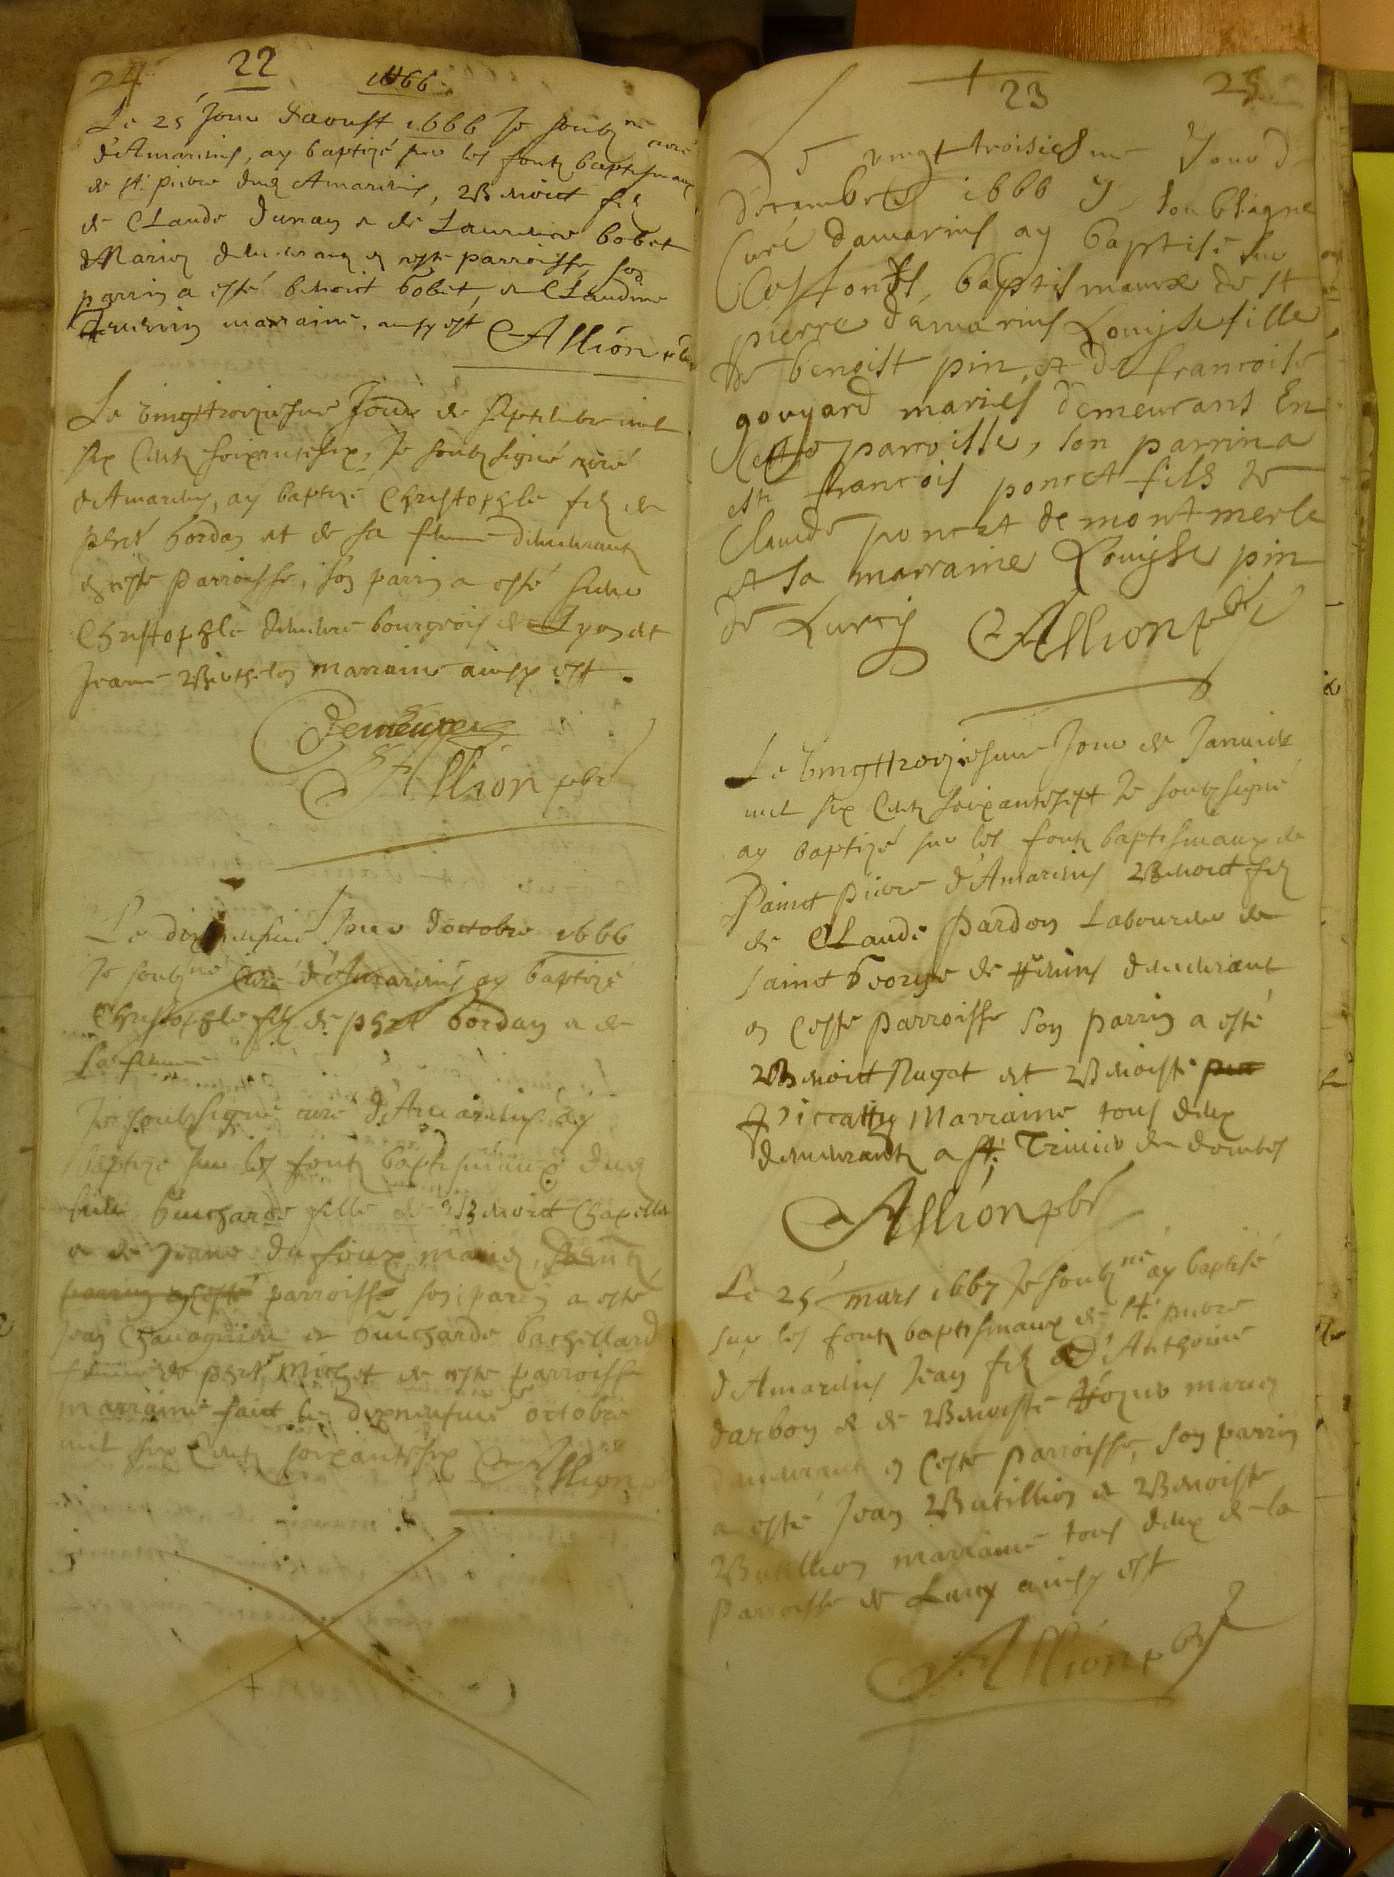 24 22 1666
Le 25 Jour daoust 1666 Je soubz ne curé
d'Amarins, ay baptizé sur les fontz baptismaux
de st. pierre dud Amarins, Benoict filz
de Claude Dunan e de Laurence bobet
Mariez demeurans en ceste parroisse, son
parrin a esté benoict bobet, e Claudine
marraine, ainsy est Allion
Le vingttroyziesme Jour de septembre mil
six centz soixantesix, Je soubzsigné curé
d'Amarins, ay baptizé Christophle filz de
bordan et de sa femme demeurantz
en ceste parroisse, son parrin a esté sieur
Christophle demeure bourgeois de Lyon et
Jeanne Berthelon marraine ainsy est.
Demeure
Allion pbr
Le Jour doctobre 1666
Je soubz né curé d'Amarins ay baptizé
Christophle filz de bordan e de
sa femme
Je soubzsigné curé d'Amarins ay
baptizé sur les fontz baptismaux dud
lieu Guicharde fille de Benoict Chapella
e de Jeanne du mariez,
parroisse son parrin a esté
Jean e Guicharde bachellard
de Michet de ceste parroisse
marraine faict le octobre
mil six centz soixantesix Allion
23 25
vingt troisiesme Jour d
decembre 1666 Je soubsigné
Curé damarins ay baptisé sur
les fonts baptismaux de st
pierre damarins Louyse fille
de benoist pin, et de francoise
gouyard mariés demeurans En
cette parroisse, son parrin a
esté francois poncet fils de
Claude poncet de montmerle
et sa marraine Louyse pin
de Lurcy Allion pbr
Le vingttroyziesme Jour de Janvier
mil six centz soixantesept Je soubzsigné
ay baptizé sur les fontz baptismaux de
Sainct pierre d'Amarins Benoict filz
de Claude Pardon Laboureur de
Sainct George de demeurant
en Ceste parroisse son parrin a esté
Benoict Nugat et Benoiste
Marraine tous deux
demeurantz a st. Trivier de dombes
Allion pbr
Le 25 mars 1667 Je soubz né ay baptisé
sur les fontz baptismaux de st. pierre
d'Amarins Jean filz d'Anthoine
darbon e de Benoiste mariez
demeurant en Ceste parroisse, son parrin
a esté Jean Butillion e Benoiste
Butillion marraine tous deux de la
parroisse de Lurcy ainsy est
Allion pbr